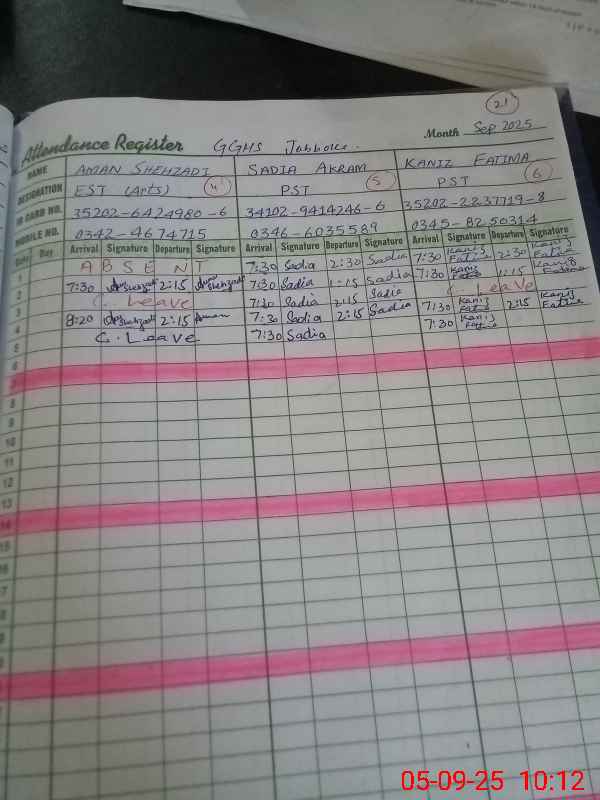 21
Attendance Register GGHS Month Sep 2025
NAME AMAN SHEHZADI SADIA AKRAM KANIZ FATIMA
DESIGNATION EST (Arts) 4 PST 5 PST 6
ID CARD NO. 35202-6424980-6 34102-9414246-6 35202-2237719-8
MOBILE NO. 0342-4674715 0346-6035589 0345-8250314
Date Day Arrival Signature Departure Signature Arrival Signature Departure Signature Arrival Signature Departure Signature
1 ABSENT 7:30 Sadia 2:30 Sadia 7:30 Kaniz Fatima 2:30 Kaniz Fatima
2 7:30 2:15 7:30 Sadia 1:15 Sadia 7:30 Kaniz 1:15
3 C. Leave 7:30 Sadia 2:15 Sadia C. Leave
4 8:20 2:15 Aman 7:30 Sadia 2:15 Sadia 7:30 Kaniz Fatima 2:15 Kaniz Fatima
5 C. Leave 7:30 Sadia 7:30 Kaniz Fatima
6
7
8
9
10
11
12
13
14
15
16
17
18
05-09-25 10:12